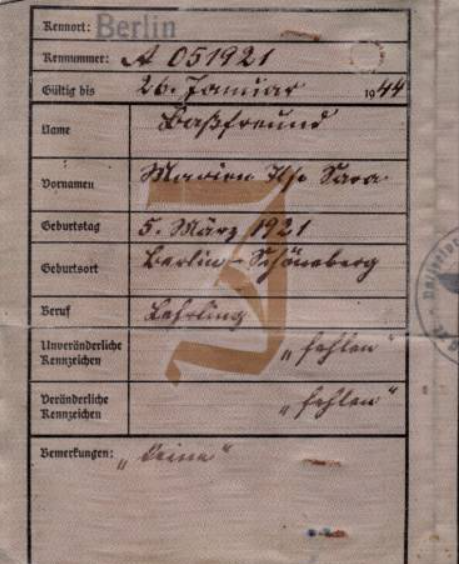 Kennort: Berlin
Kennummer: A 051921
Gültig bis 26. Januar 1944
Name Baßfreund
Vornamen Marion Ilse Sara
Geburtstag 5. März 1921
Geburtsort Berlin-Schöneberg
Beruf Lehrling
Unveränderliche
Kennzeichen „fehlen“
Veränderliche
Kennzeichen „fehlen“
Bemerkungen: „keine“
J